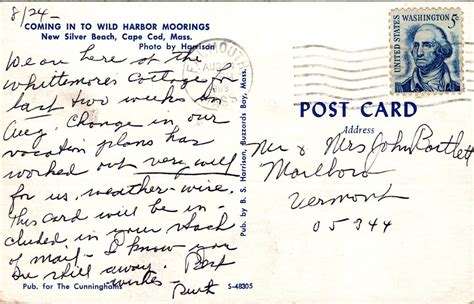 8/24—
COMING IN TO WILD HARBOR MOORINGS
New Silver Beach, Cape Cod, Mass.
Photo by Harrison
We are here at the
Whittemores Cottage for
last two weeks in
Aug. Change in our
vacation plans has
worked out very well
for us, weather-wise.
This card will be in-
cluded in your stack
of mail — I know you
are still away. Best
wishes - Ruth
Pub. for The Cunninghams
S-48305
Pub. by B. S. Harrison, Buzzards Bay, Mass.
FALMOUTH
AUG
MASS
UNITED STATES
WASHINGTON 5c
POST CARD
Address
Mr & Mrs John Bartlett
Marlboro
Vermont
05344